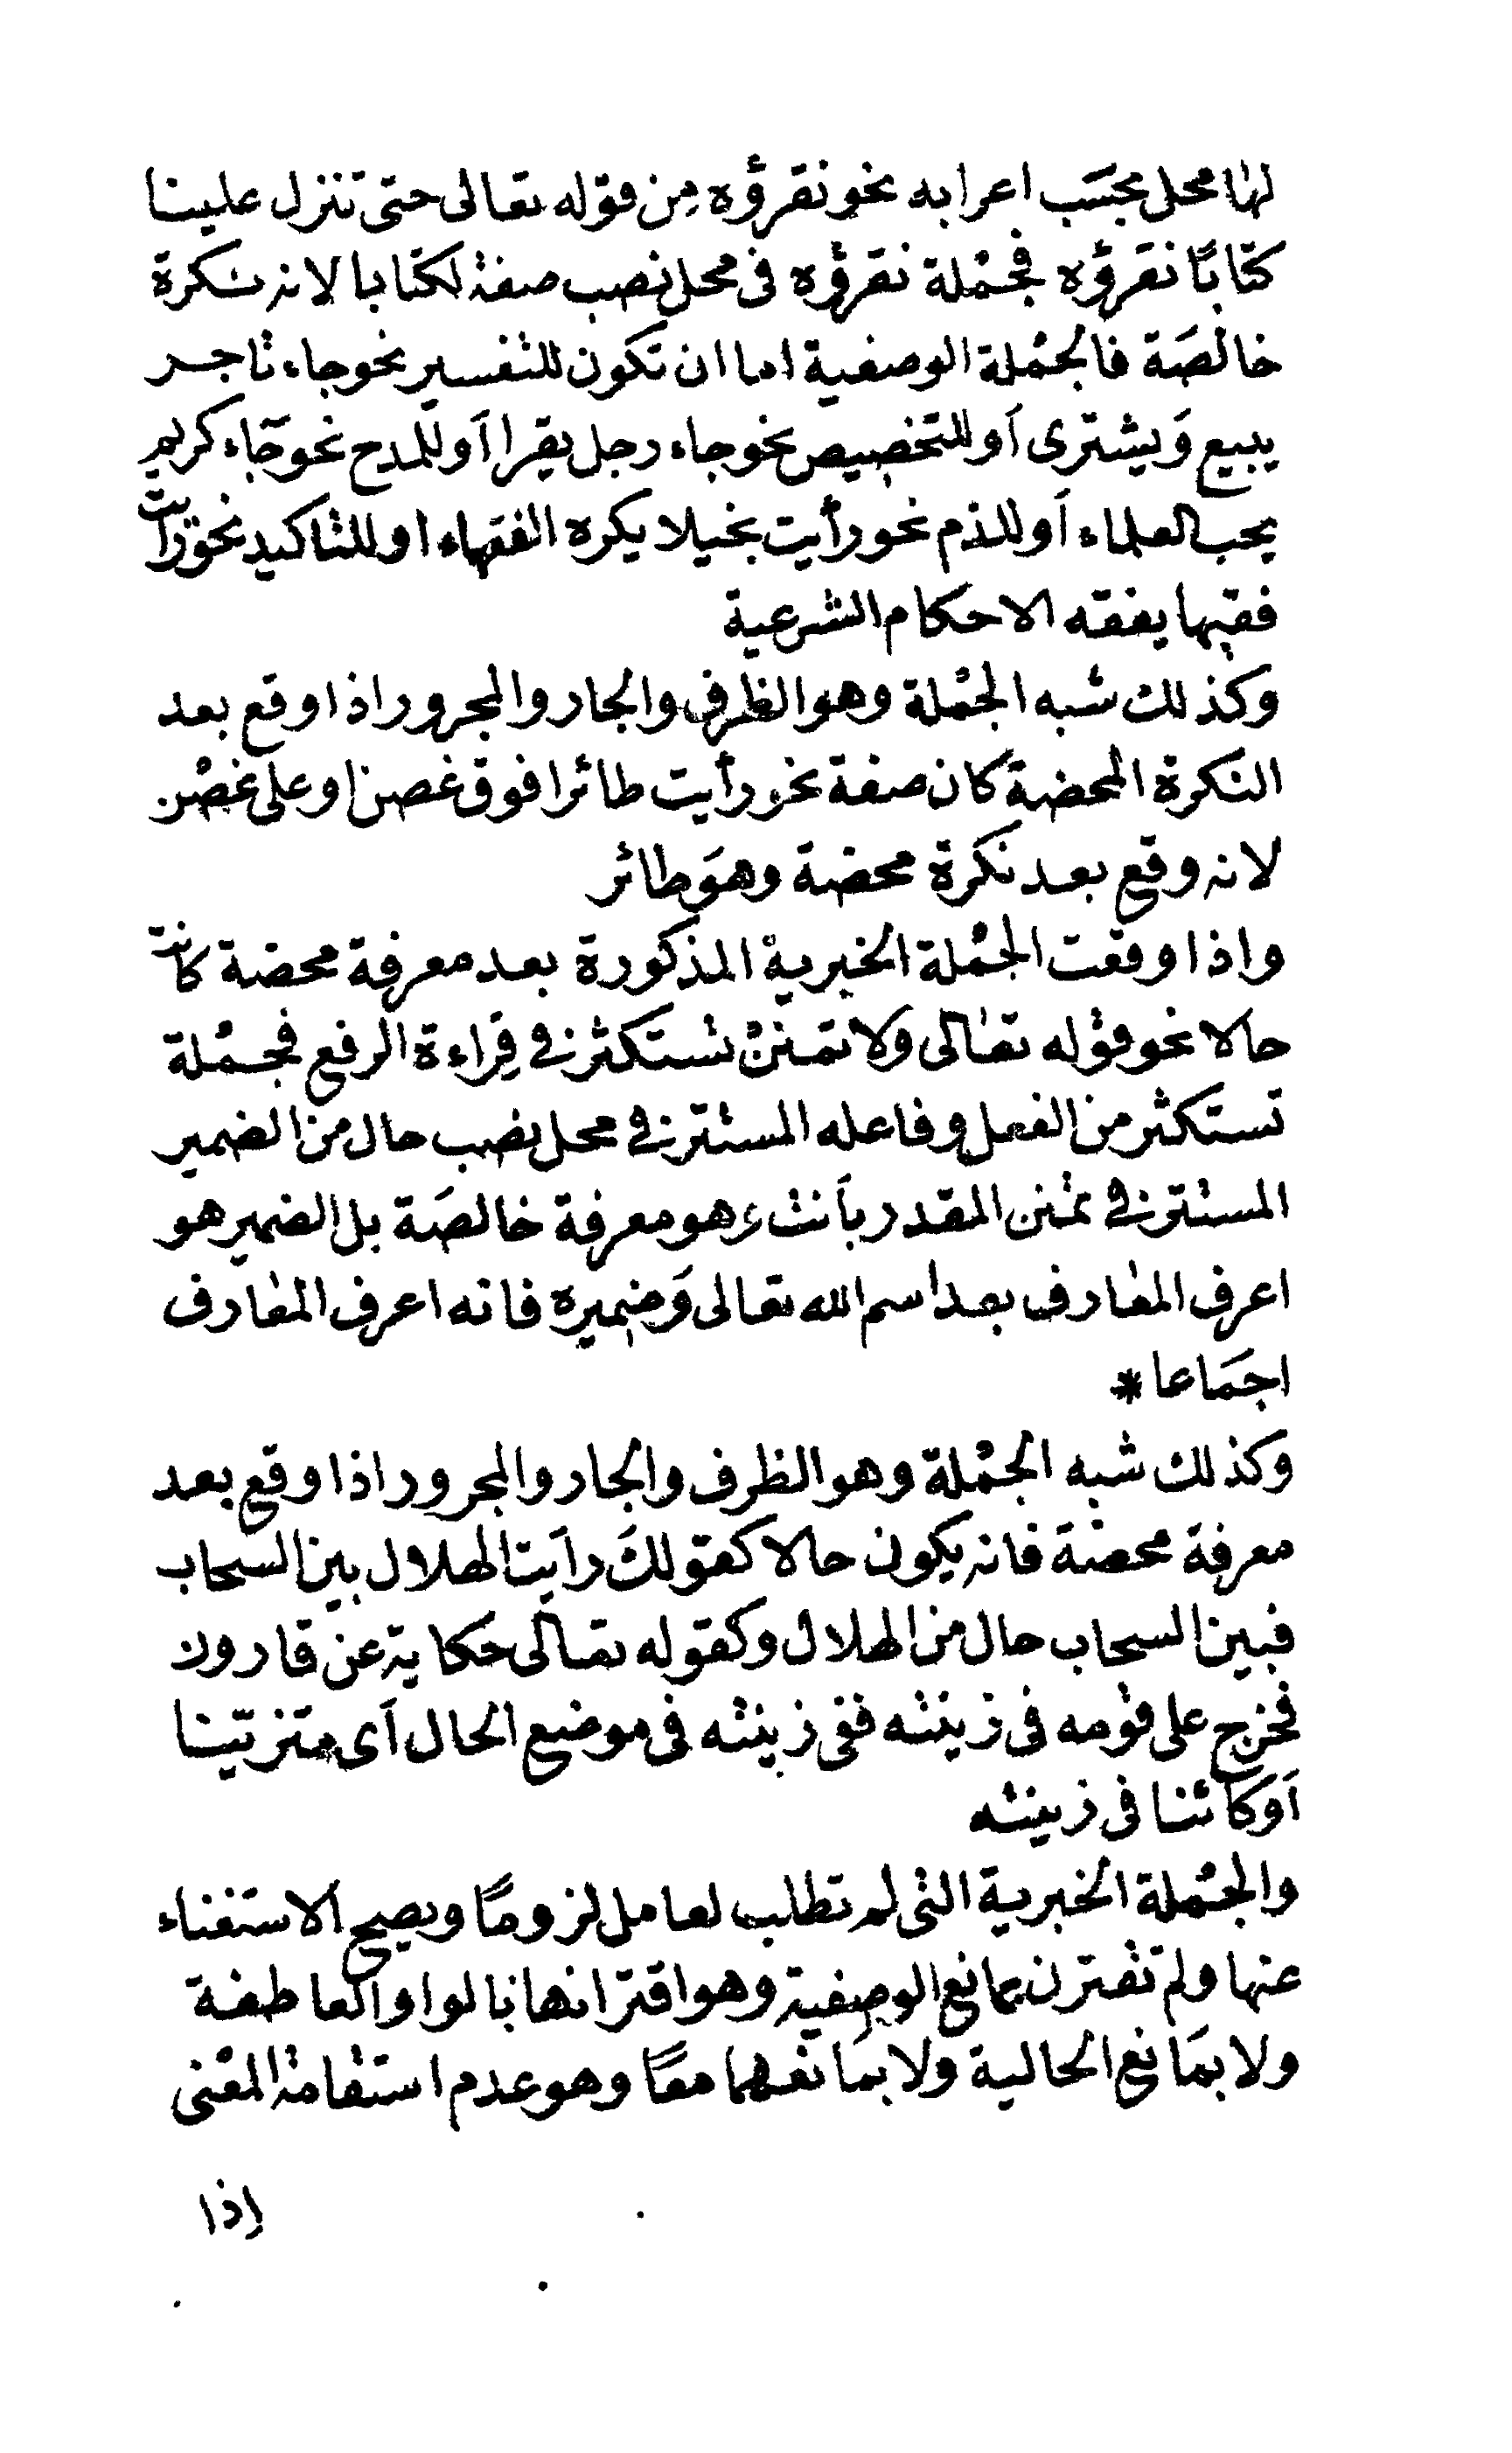 لها محل بحسَب اعرابه نحو نقرؤه مِن قوله تعالى حتى تنزل علينا
كتابًا نقرؤه فجمْلة نقرؤه فى محل نصب صفة لكتابا لانه نكرة
خالصَة فالجمْلة الوصفية اما ان تكون للتفسير نحو جاء تاجر
يبيع وَيشترى أو للتخصيص نحو جاء رجل يقرا أو للمدح نحو جَاء كريم
يحب العلماء أو للذم نحو رأيت بخيلا يكره الفقهاء او للتاكيد نحو رأيت
فقيها يفقه الاحكام الشرعية
وكذلك شبه الجمْلة وهو الظرف والجار والمجرور اذا وقع بعد
النكرة المحضة كان صفة نحو رأيت طائرا فوق غصن او على غصْن
لانه وقع بعد نكرة محضة وهوَ طائر
واذا وقعت الجمْلة الخبرية المذكورة بعد معرفة محضة كانت
حالا نحو قوله تعالى ولا تمنن تستكثر فى قِراءة الرفع فجمْلة
تستكثر من الفعل وفاعله المستتر فى محل نصب حال من الضمير
المستتر فى تمنن المقدر بأنت وهو معرفة خالصَة بل الضمير هو
اعرف المعارف بعد اسم الله تعالى وَضميره فانه اعرف المعارف
اجمَاعا *
وكذلك شبه الجمْلة وهو الظرف والجار والمجرور اذا وقع بعد
معرفة محضة فانه يكون حالا كقولكَ رأيت الهلال بين السحاب
فبين السحاب حال من الهلال وكقوله تعالى حكاية عن قارون
فخرج على قومه فى زينته ففى زينته فى موضع الحال أى متزيّنا
أوكائنا فى زينته
والجمْلة الخبرية التى لم تطلب لعامل لزومًا ويصح الاستغناء
عنها ولم تقترن بمانع الوصفية وهو اقترانها بالواو العاطفة
ولا بمَانع الحالية ولا بمَانعهما معًا وهو عدم استقامة المعْنى
إذا